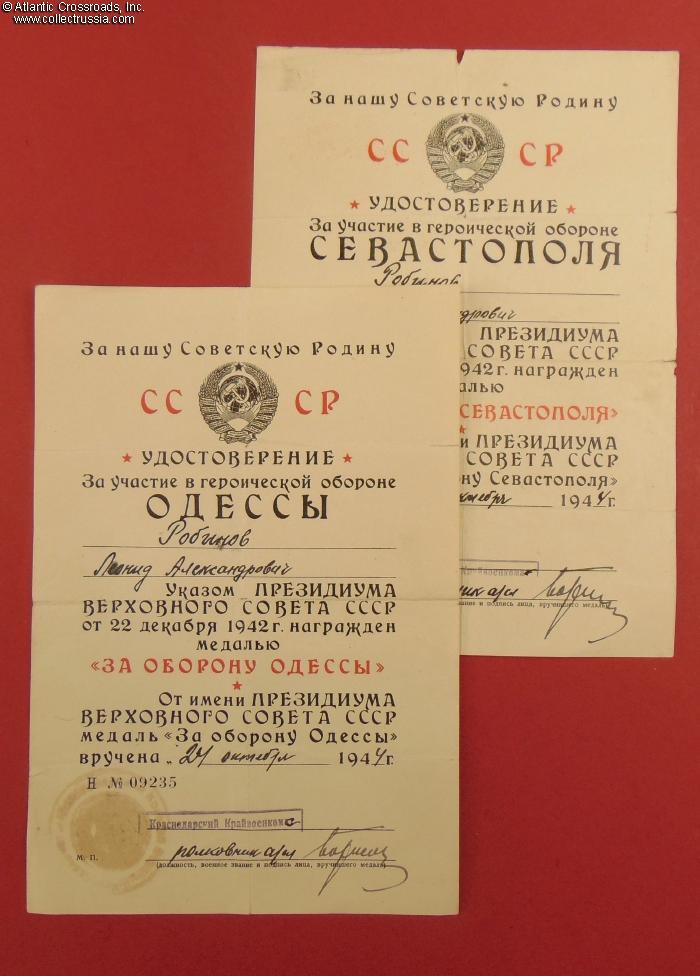 © Atlantic Crossroads, Inc.
www.collectrussia.com
За нашу Советскую Родину
СС СР
УДОСТОВЕРЕНИЕ
За участие в героической обороне
СЕВАСТОПОЛЯ
Робинов
ндрович
ПРЕЗИДИУМА
СОВЕТА СССР
1942 г. награжден
медалью
СЕВАСТОПОЛЯ»
ПРЕЗИДИУМА
СОВЕТА СССР
ону Севастополя»
октября 1944 г.
Крайвоенкома
звание и подпись лица, вручившего медаль)
За нашу Советскую Родину
СС СР
УДОСТОВЕРЕНИЕ
За участие в героической обороне
ОДЕССЫ
Робинов
Леонид Александрович
Указом ПРЕЗИДИУМА
ВЕРХОВНОГО СОВЕТА СССР
от 22 декабря 1942 г. награжден
медалью
«ЗА ОБОРОНУ ОДЕССЫ»
От имени ПРЕЗИДИУМА
ВЕРХОВНОГО СОВЕТА СССР
медаль «За оборону Одессы»
вручена „24 октября 1944 г.
Н № 09235
Краснодарский Крайвоенком
М. П. полковник
(должность, военное звание и подпись лица, вручившего медаль)